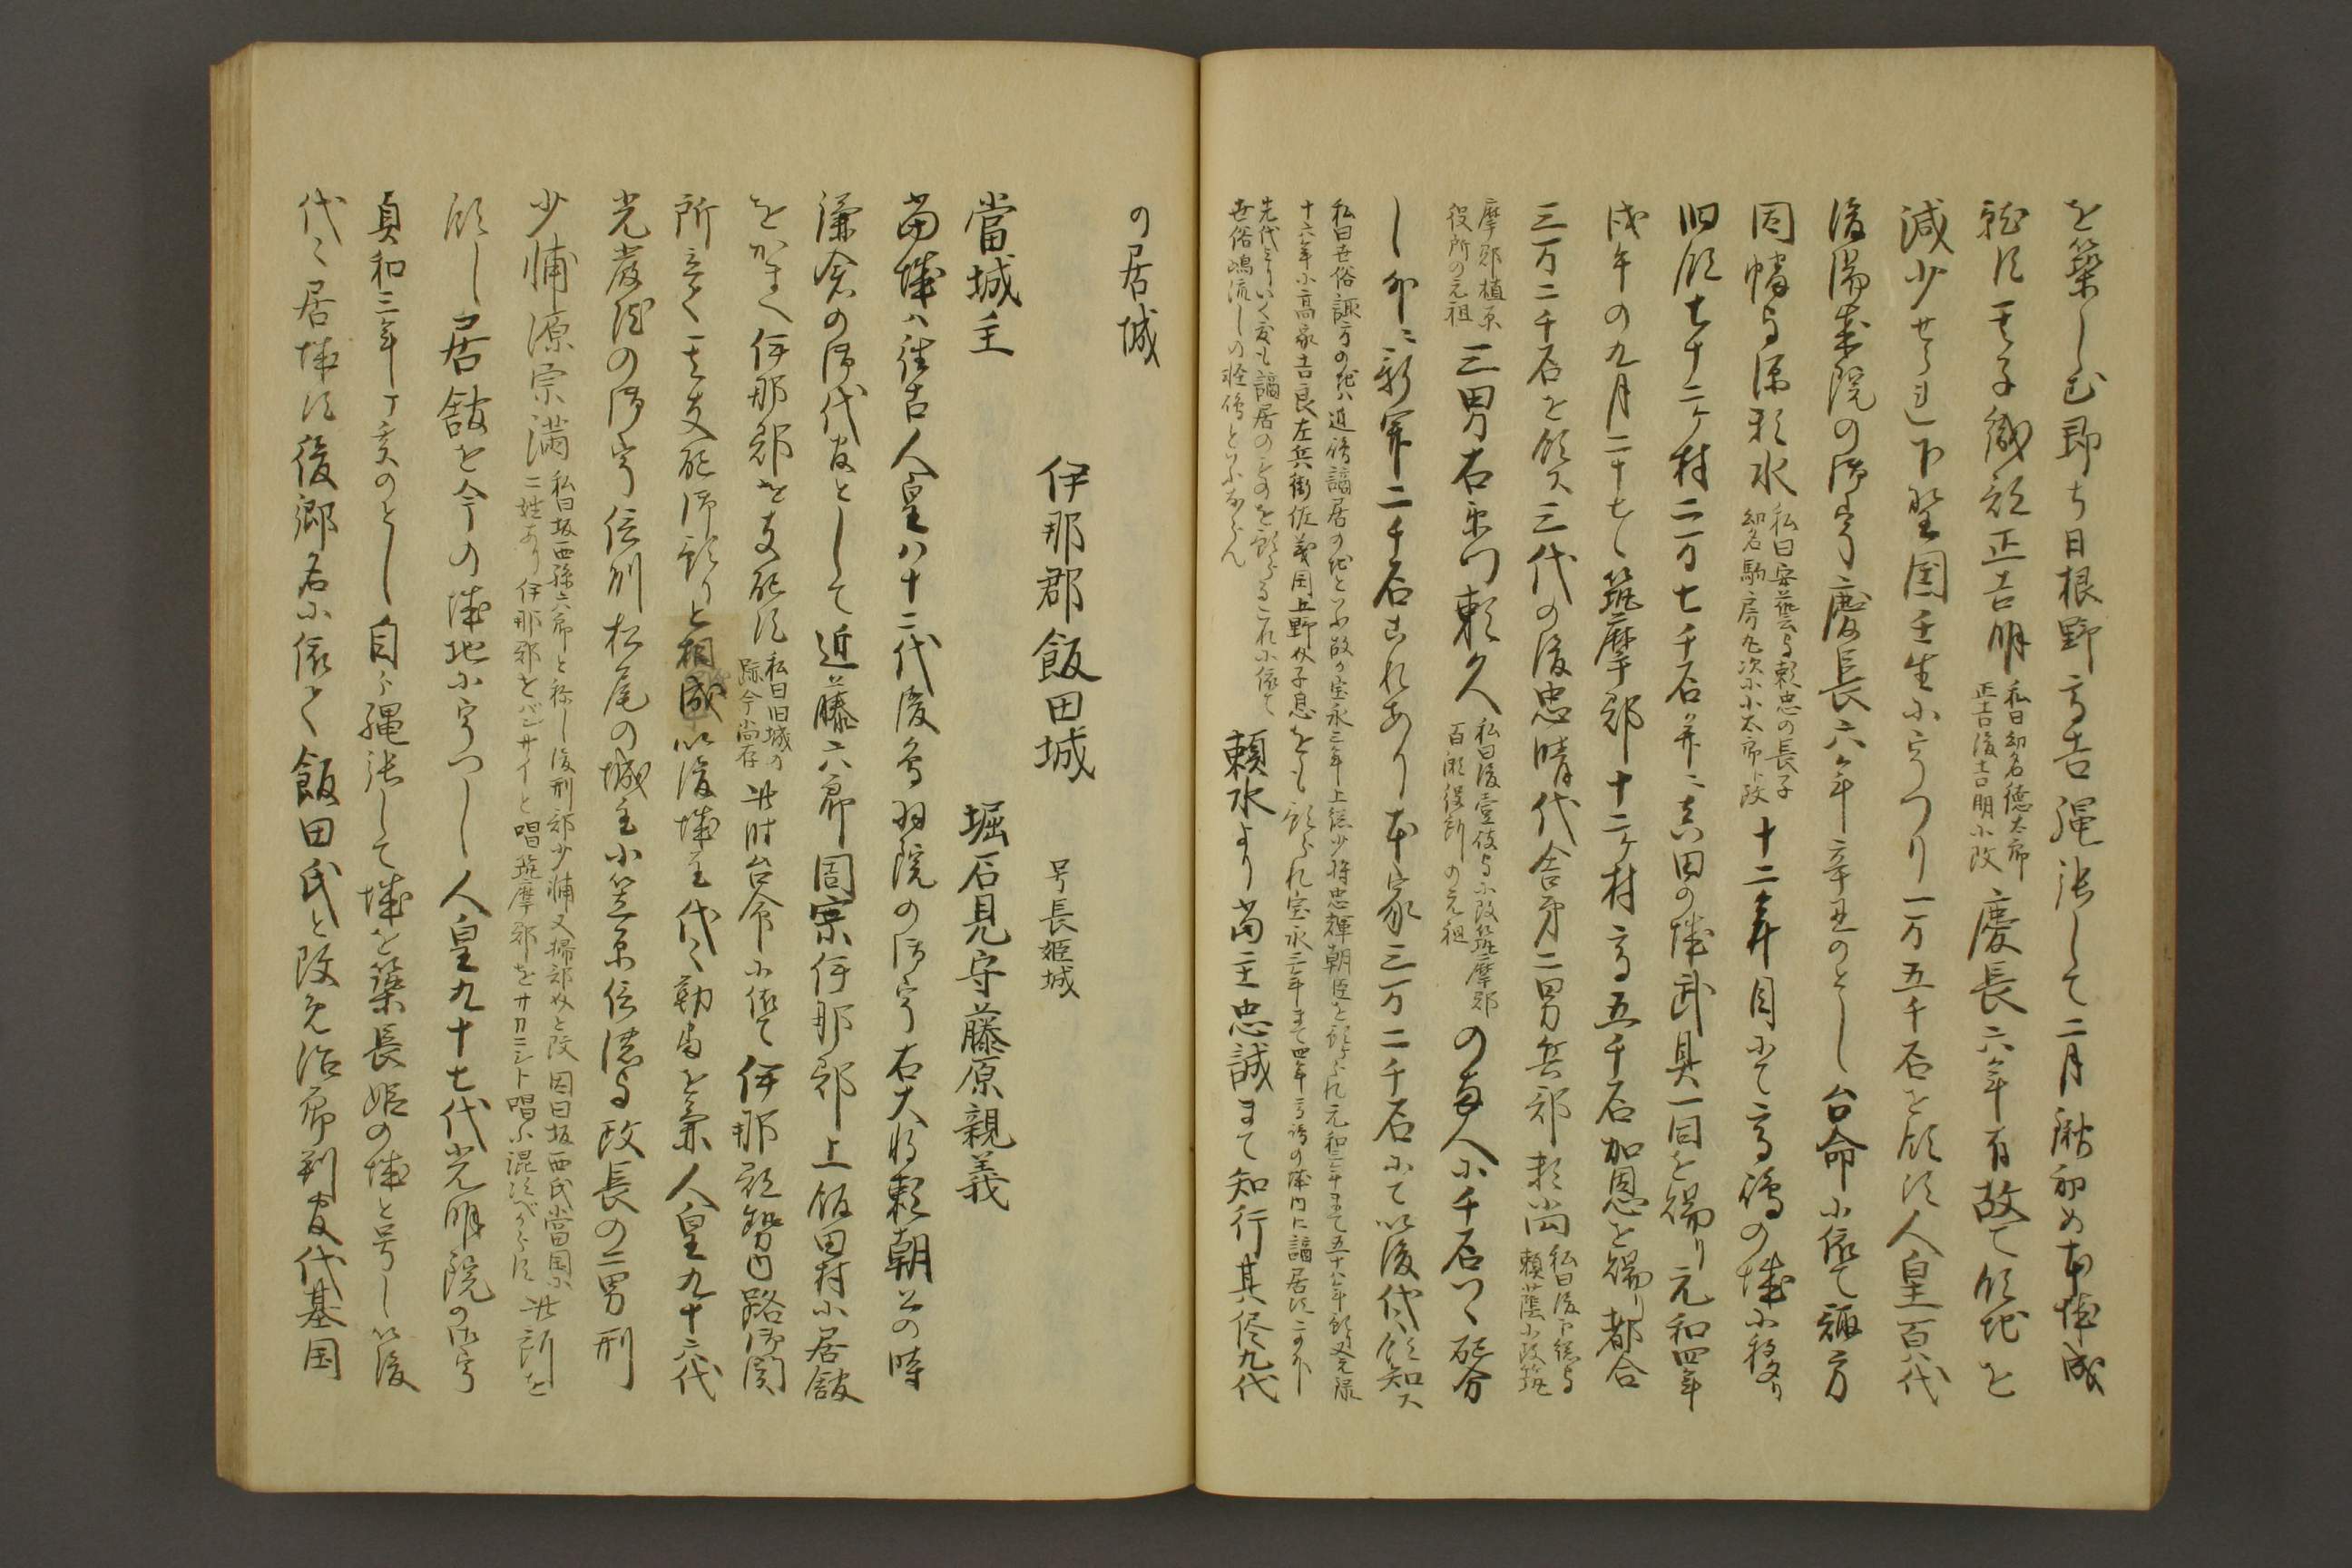 を築しむ即ち日根野高吉縄張して二月漸初め本城成
就す其子織部正吉明私曰幼名徳太郎正吉後吉明小改慶長六年有故て領地を
減少せられ下野国壬生小うつり一万五千石を領す人皇百八代
後陽成院の御宇慶長六年辛丑のとし台命小依て諏方
因幡守源頼水私曰安藝守頼忠の長子幼名駒房丸次小小太郎ト改十二年目にて高嶋の城小移り
旧領七十二ヶ村二万七千石并ニ高田の城武具一同を賜り元和四年
戊午の九月二十七日筑摩郡十二ヶ村高五千石加恩を賜り都合
三万二千石を領ス三代の後忠晴代舎弟二男兵部頼蔭私曰後下総守頼蔭小改筑
摩郡植原役所の元祖三男右衛門頼久私曰後壹岐守小改筑摩郡百瀬役所の元祖の両人小千石ツヽ配分
し外ニ新開二千石これあり本家三万二千石にて以後代々領知ス
私曰世俗諏方の地ハ遊跡謫居の地とふ故か宝永三年上総少将忠輝朝臣を預られ元和二年まて五十八年預又元禄
十六年小高家吉良左兵衛佐義周上野介子息をも預られ宝永三年まて四年高嶋の城内に謫居す二の外
先代よりいく度も謫居のものを預らるこれ小依て世俗嶋流しの怪俗といふならん頼水より當主忠誠まて知行其侭九代
の居城
伊那郡飯田城 号長姫城
當城主 堀石見守藤原親義
當城ハ往古人皇八十二代後鳥羽院の御宇右大将頼朝公の時
鎌倉の御代官として近藤六郎周家伊那郡上飯田村小居館
をかまへ伊那郡を支配す私曰旧城の跡今尚存此時台命小依て伊那郡路御関
所立て其支配御預りと相成以後城主代々勤番を兼人皇九十六代
光厳院の御宇信州松尾の城主小笠原信濃守政長の二男刑
少輔源宗満私曰坂西孫六郎と称し後刑部少輔又掃部介と改因曰坂西氏當国小二姓あり伊那郡をバンサイと唱筑摩郡をサカニシト唱小混ずべからず此所を
領し居舘を今の城地小うつし人皇九十七代光明院の御宇
貞和三年丁亥のとし自ラ縄張して城を築長姫の城と号し以後
代々居城す後郷名小依て飯田氏と改め治郎判官代基国